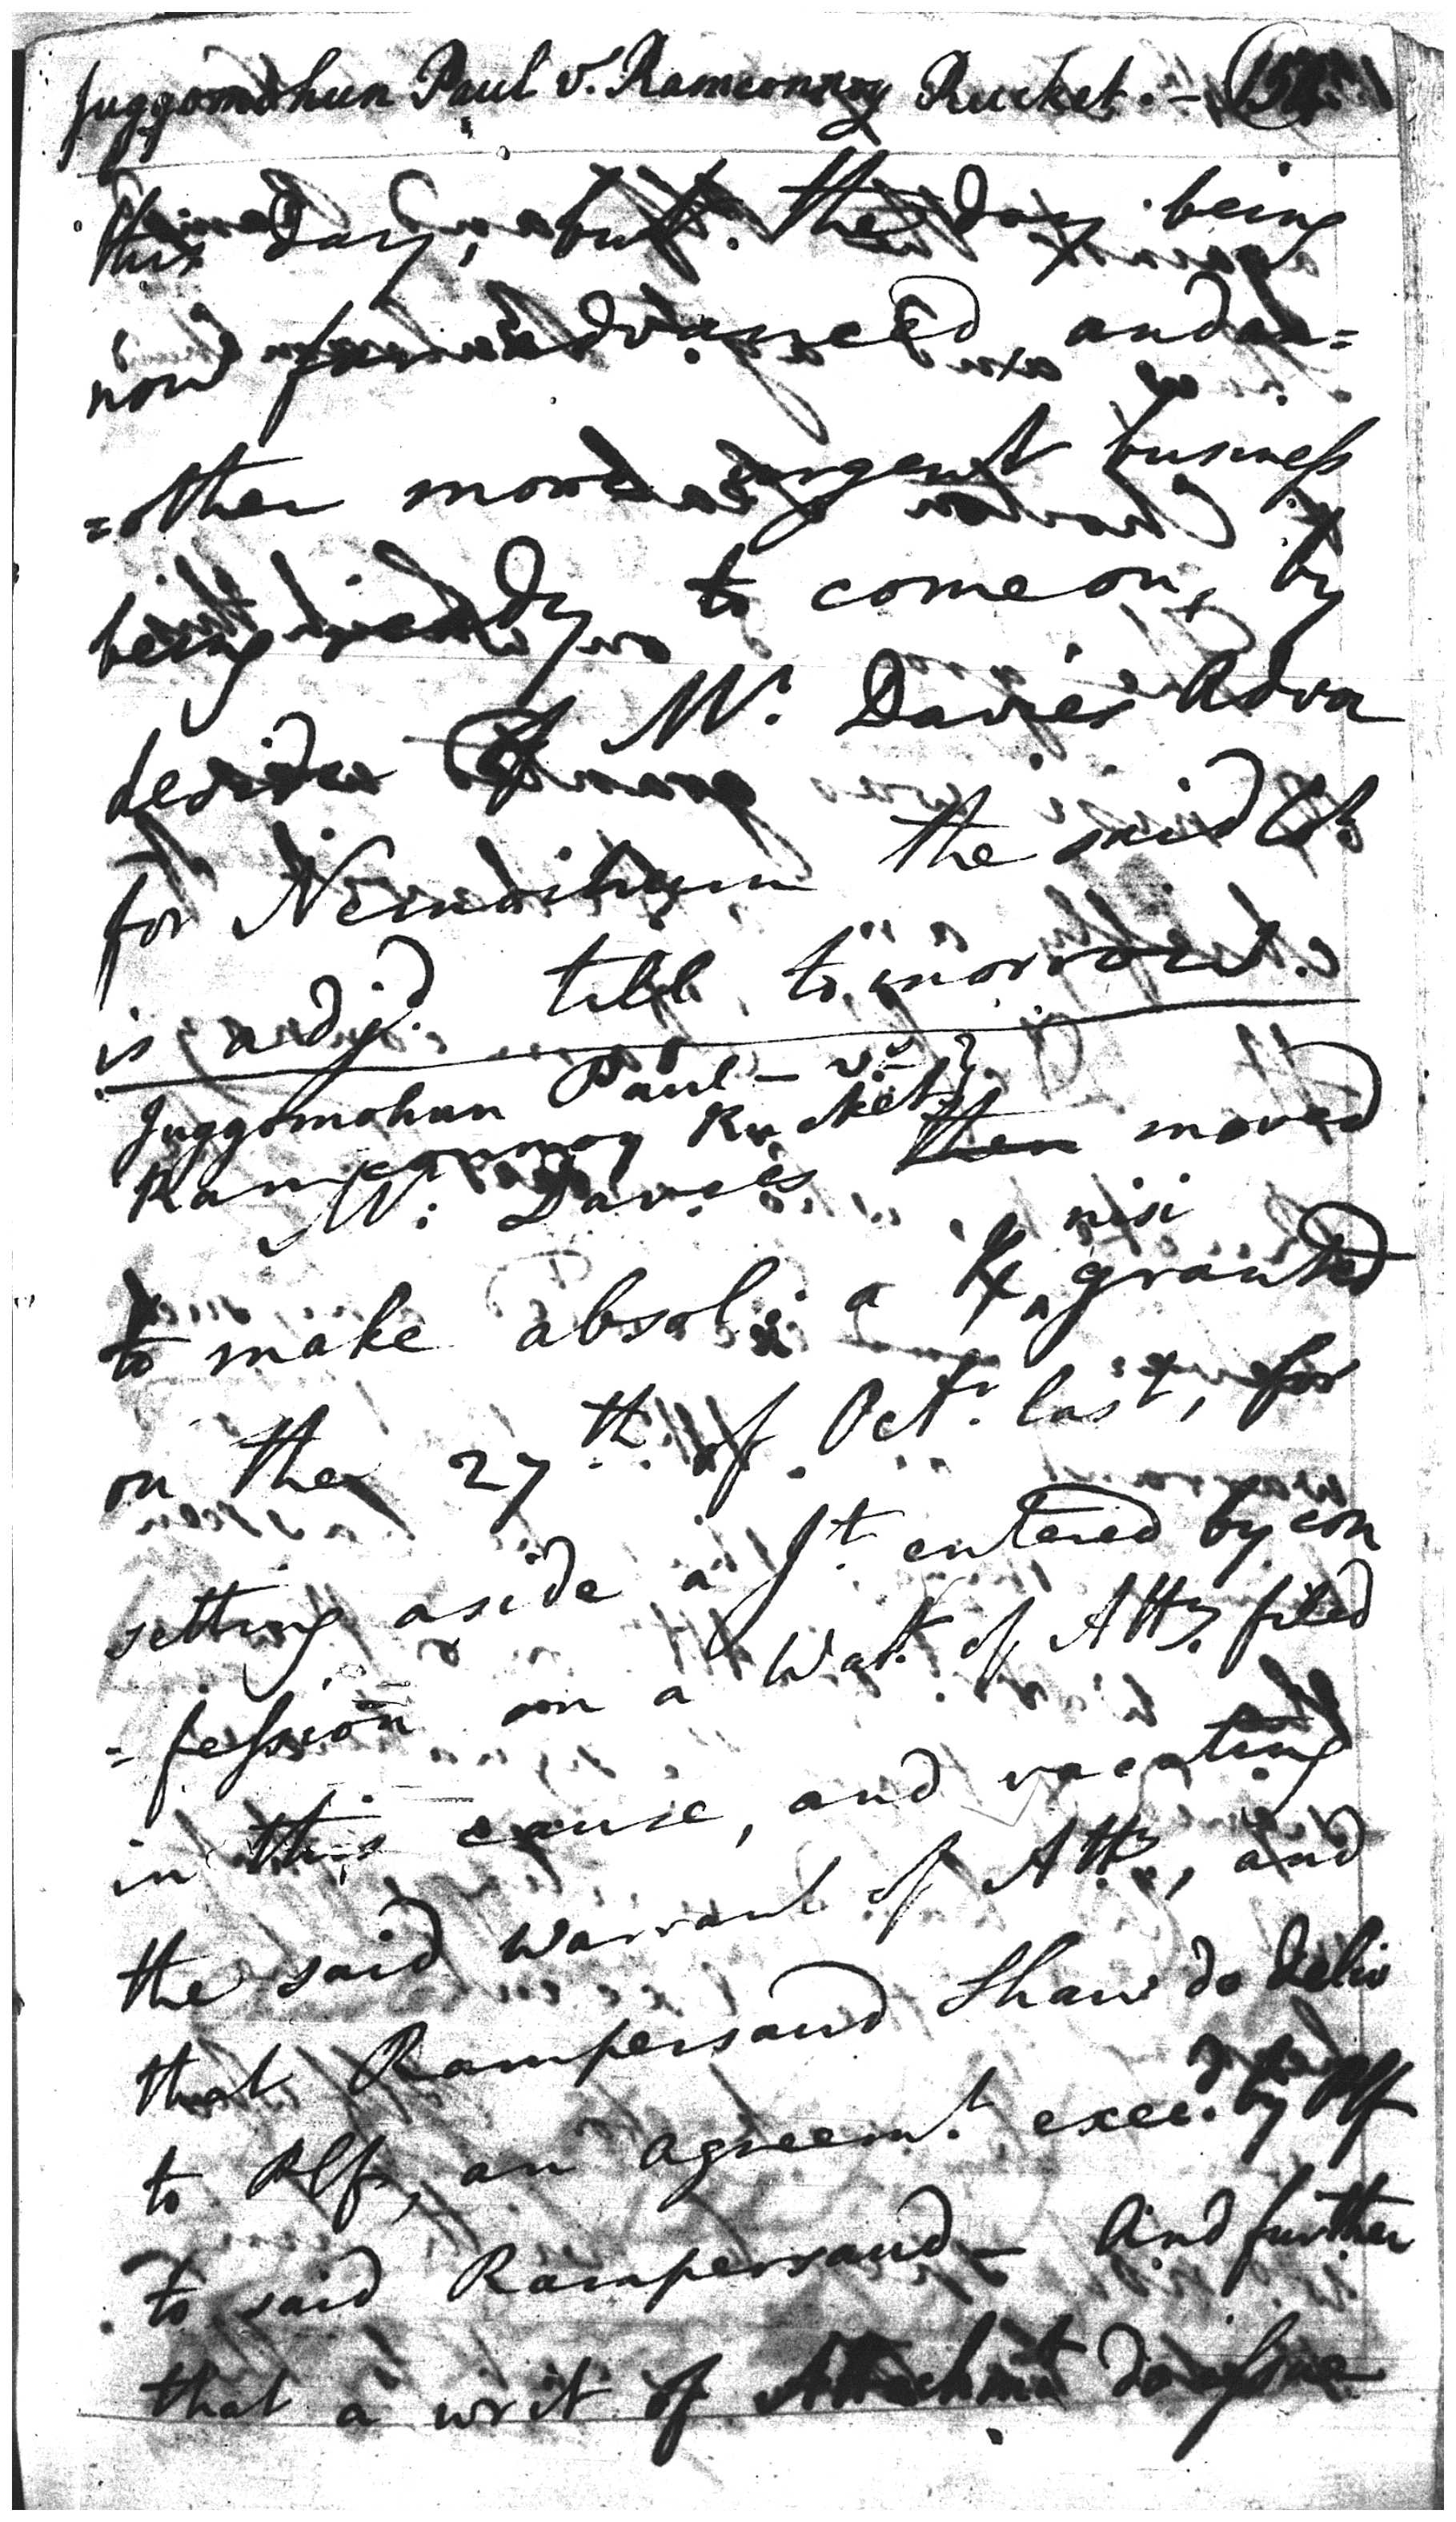 Juggomohun Paul v. Ramconnoy Rucket. —
this day, but the day being
now far advanced and an=
=other more urgent business
being ready to come on, by
desire of Mr. Davies Advo
for the said
is adjd. till to morrow.
Juggomohun Paul — vs
Ramconnoy Rucket }
Mr. Davies then moved
nisi
to make absol: a granted
on the 27th. of Octr. last, for
setting aside a Jt. entered by con
=fession on a Wat. of Atty filed
in this cause, and vacating
the said warrant of Atty., and
that Rampersaud Shaw do deliv
to Plf, an agreemt. execd. by Plf
to said Rampersaud — And further
that a writ of Attachmt do issue